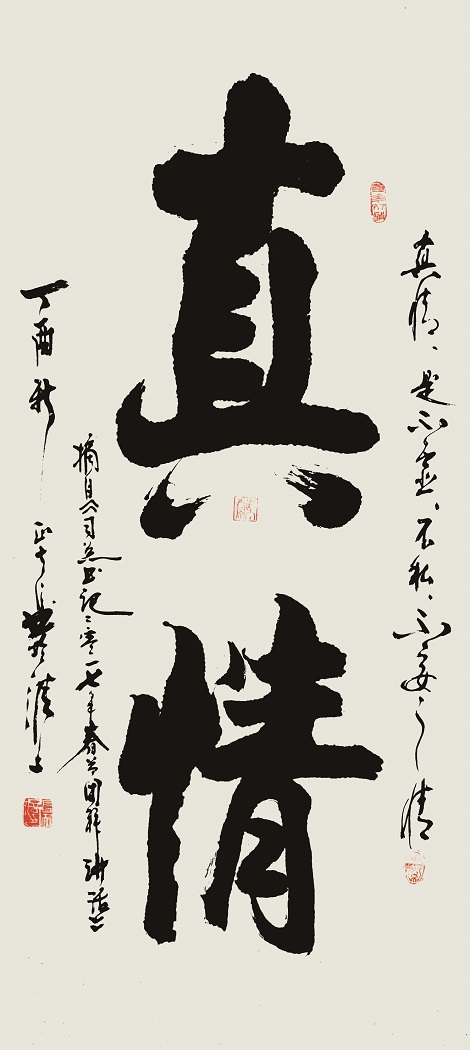 真情、是不虚、不私、不妄之情
真情
摘自习总书记二零一七年春节团拜讲话
丁酉秋